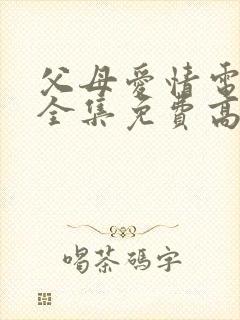 父母愛情電
全集免費高
喝茶碼字